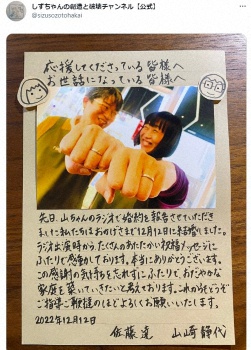 しずちゃんの創造と破壊チャンネル【公式】
@sizusozotohakai
応援してくださっている皆様へ
お世話になっている皆様へ
先日、山ちゃんのラジオで婚約を報告させていただき
ましたが私たちはおかげさまで12月12日に結婚しました。
ラジオ出演時から、たくさんのあたたかい祝福メッセージに
ふたりで感動しております。本当にありがとうございます。
この感謝の気持ちを忘れずに、ふたりで、おだやかな
家庭を築いていきたいと思っております。これからもどうぞ
ご指導ご鞭撻のほどよろしくお願いいたします。
2022年12月12日
佐藤達 山崎静代